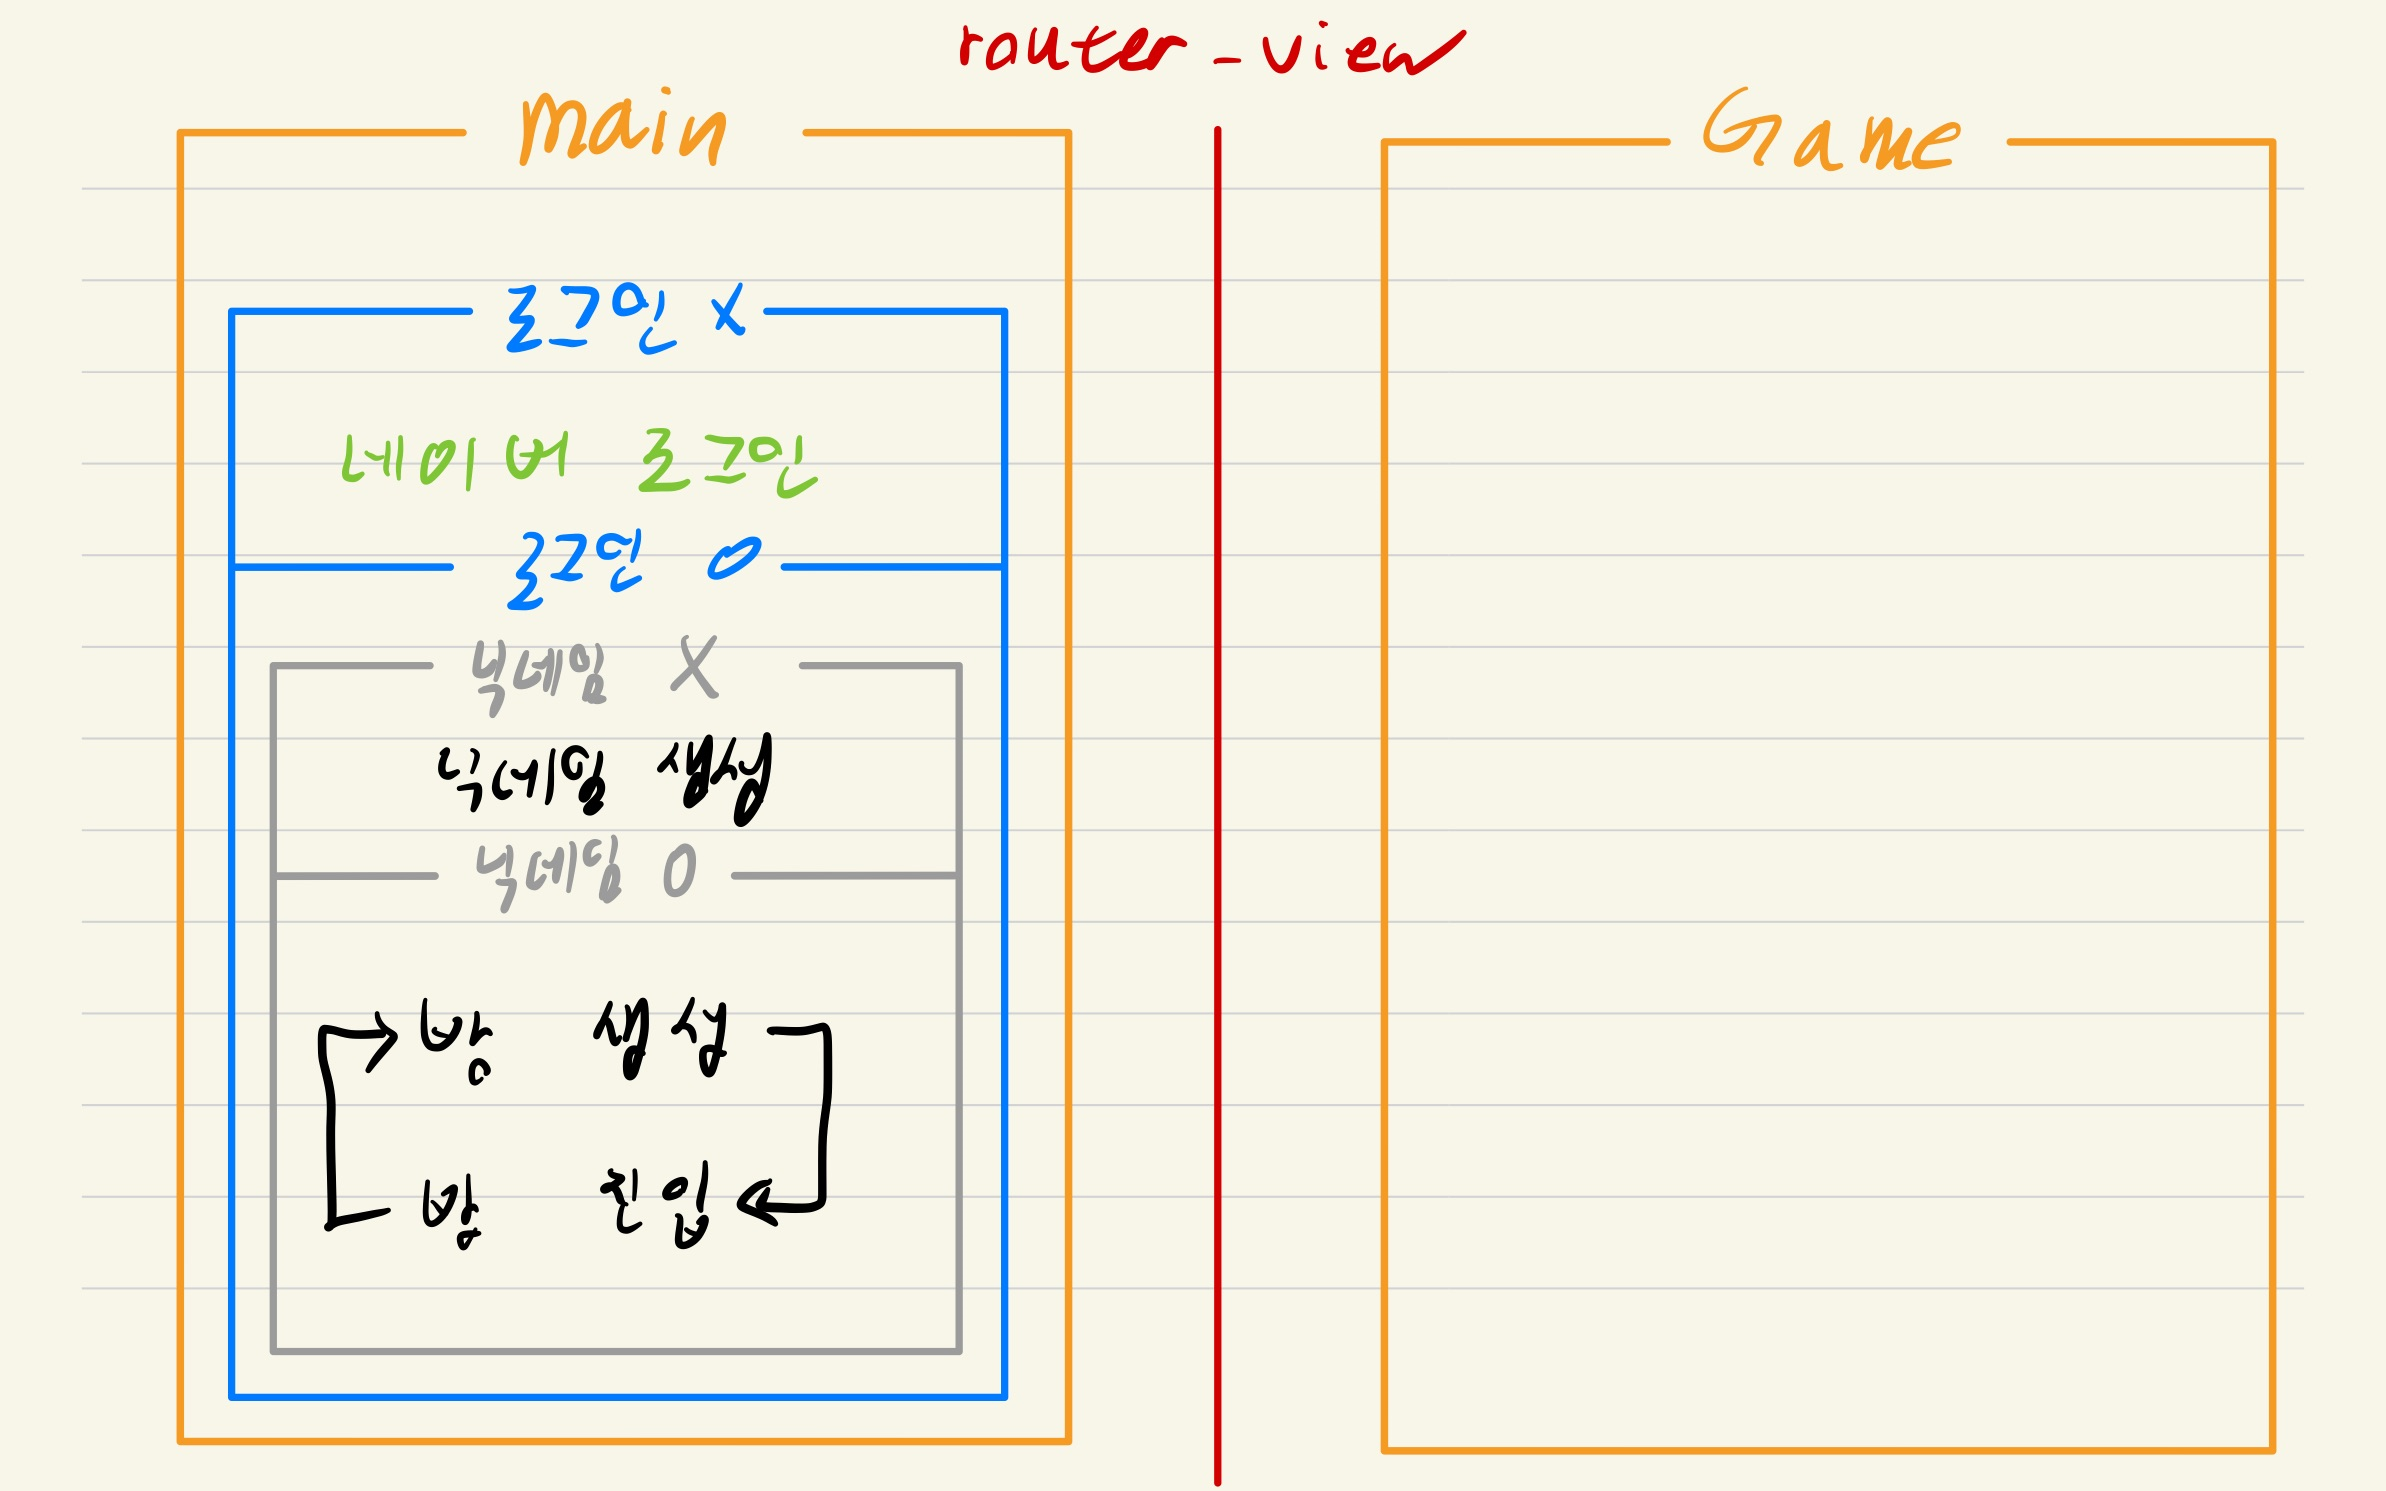 router-view
main
Game
로그인 X
네이버 로그인
로그인 O
닉네임 X
닉네임 생성
닉네임 O
방 생성
방 진입